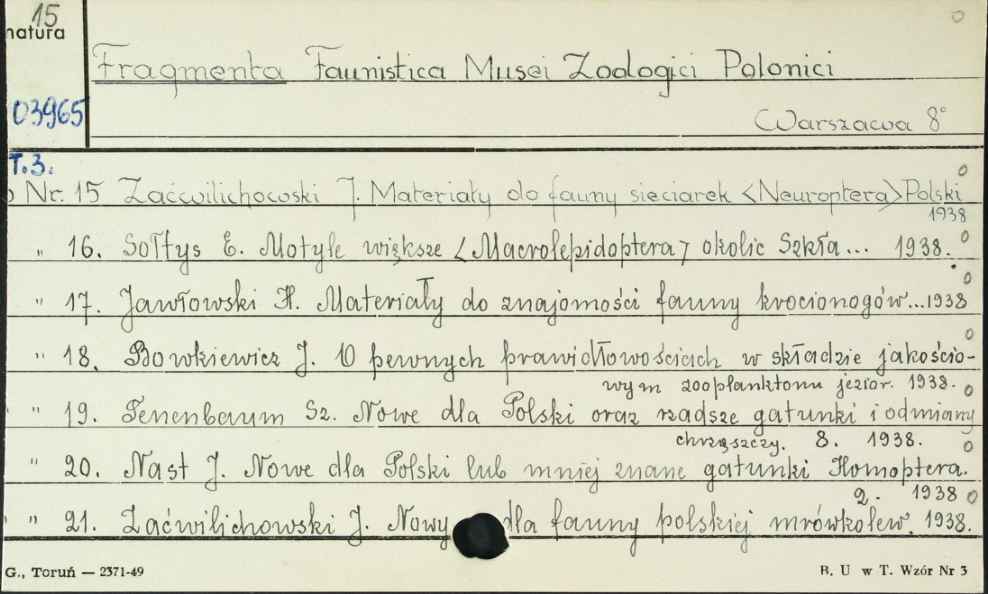 15
natura
Fragmenta Faunistica Musei Zoologici Polonici
03965
Warszawa 8°
T.3.
Nr. 15 Zaćwilichowski J. Materiały do fauny sieciarek <Neuroptera> Polski
1938
" 16. Sołtys E. Motyle większe <Macrolepidoptera> okolic Szkła... 1938.
" 17. Jawłowski H. Materiały do znajomości fauny krocionogów...1938
" 18. Bowkiewicz J. O pewnych prawidłowościach w składzie jakościo-
wym zooplanktonu jezior. 1938.
" 19. Tenenbaum Sz. Nowe dla Polski oraz rzadsze gatunki i odmiany
chrząszczy. 8. 1938.
" 20. Nast J. Nowe dla Polski lub mniej znane gatunki Homoptera.
2. 1938
" 21. Zaćwilichowski J. Nowy dla fauny polskiej mrówkolew. 1938.
G., Toruń — 2371-49
B. U w T. Wzór Nr 3